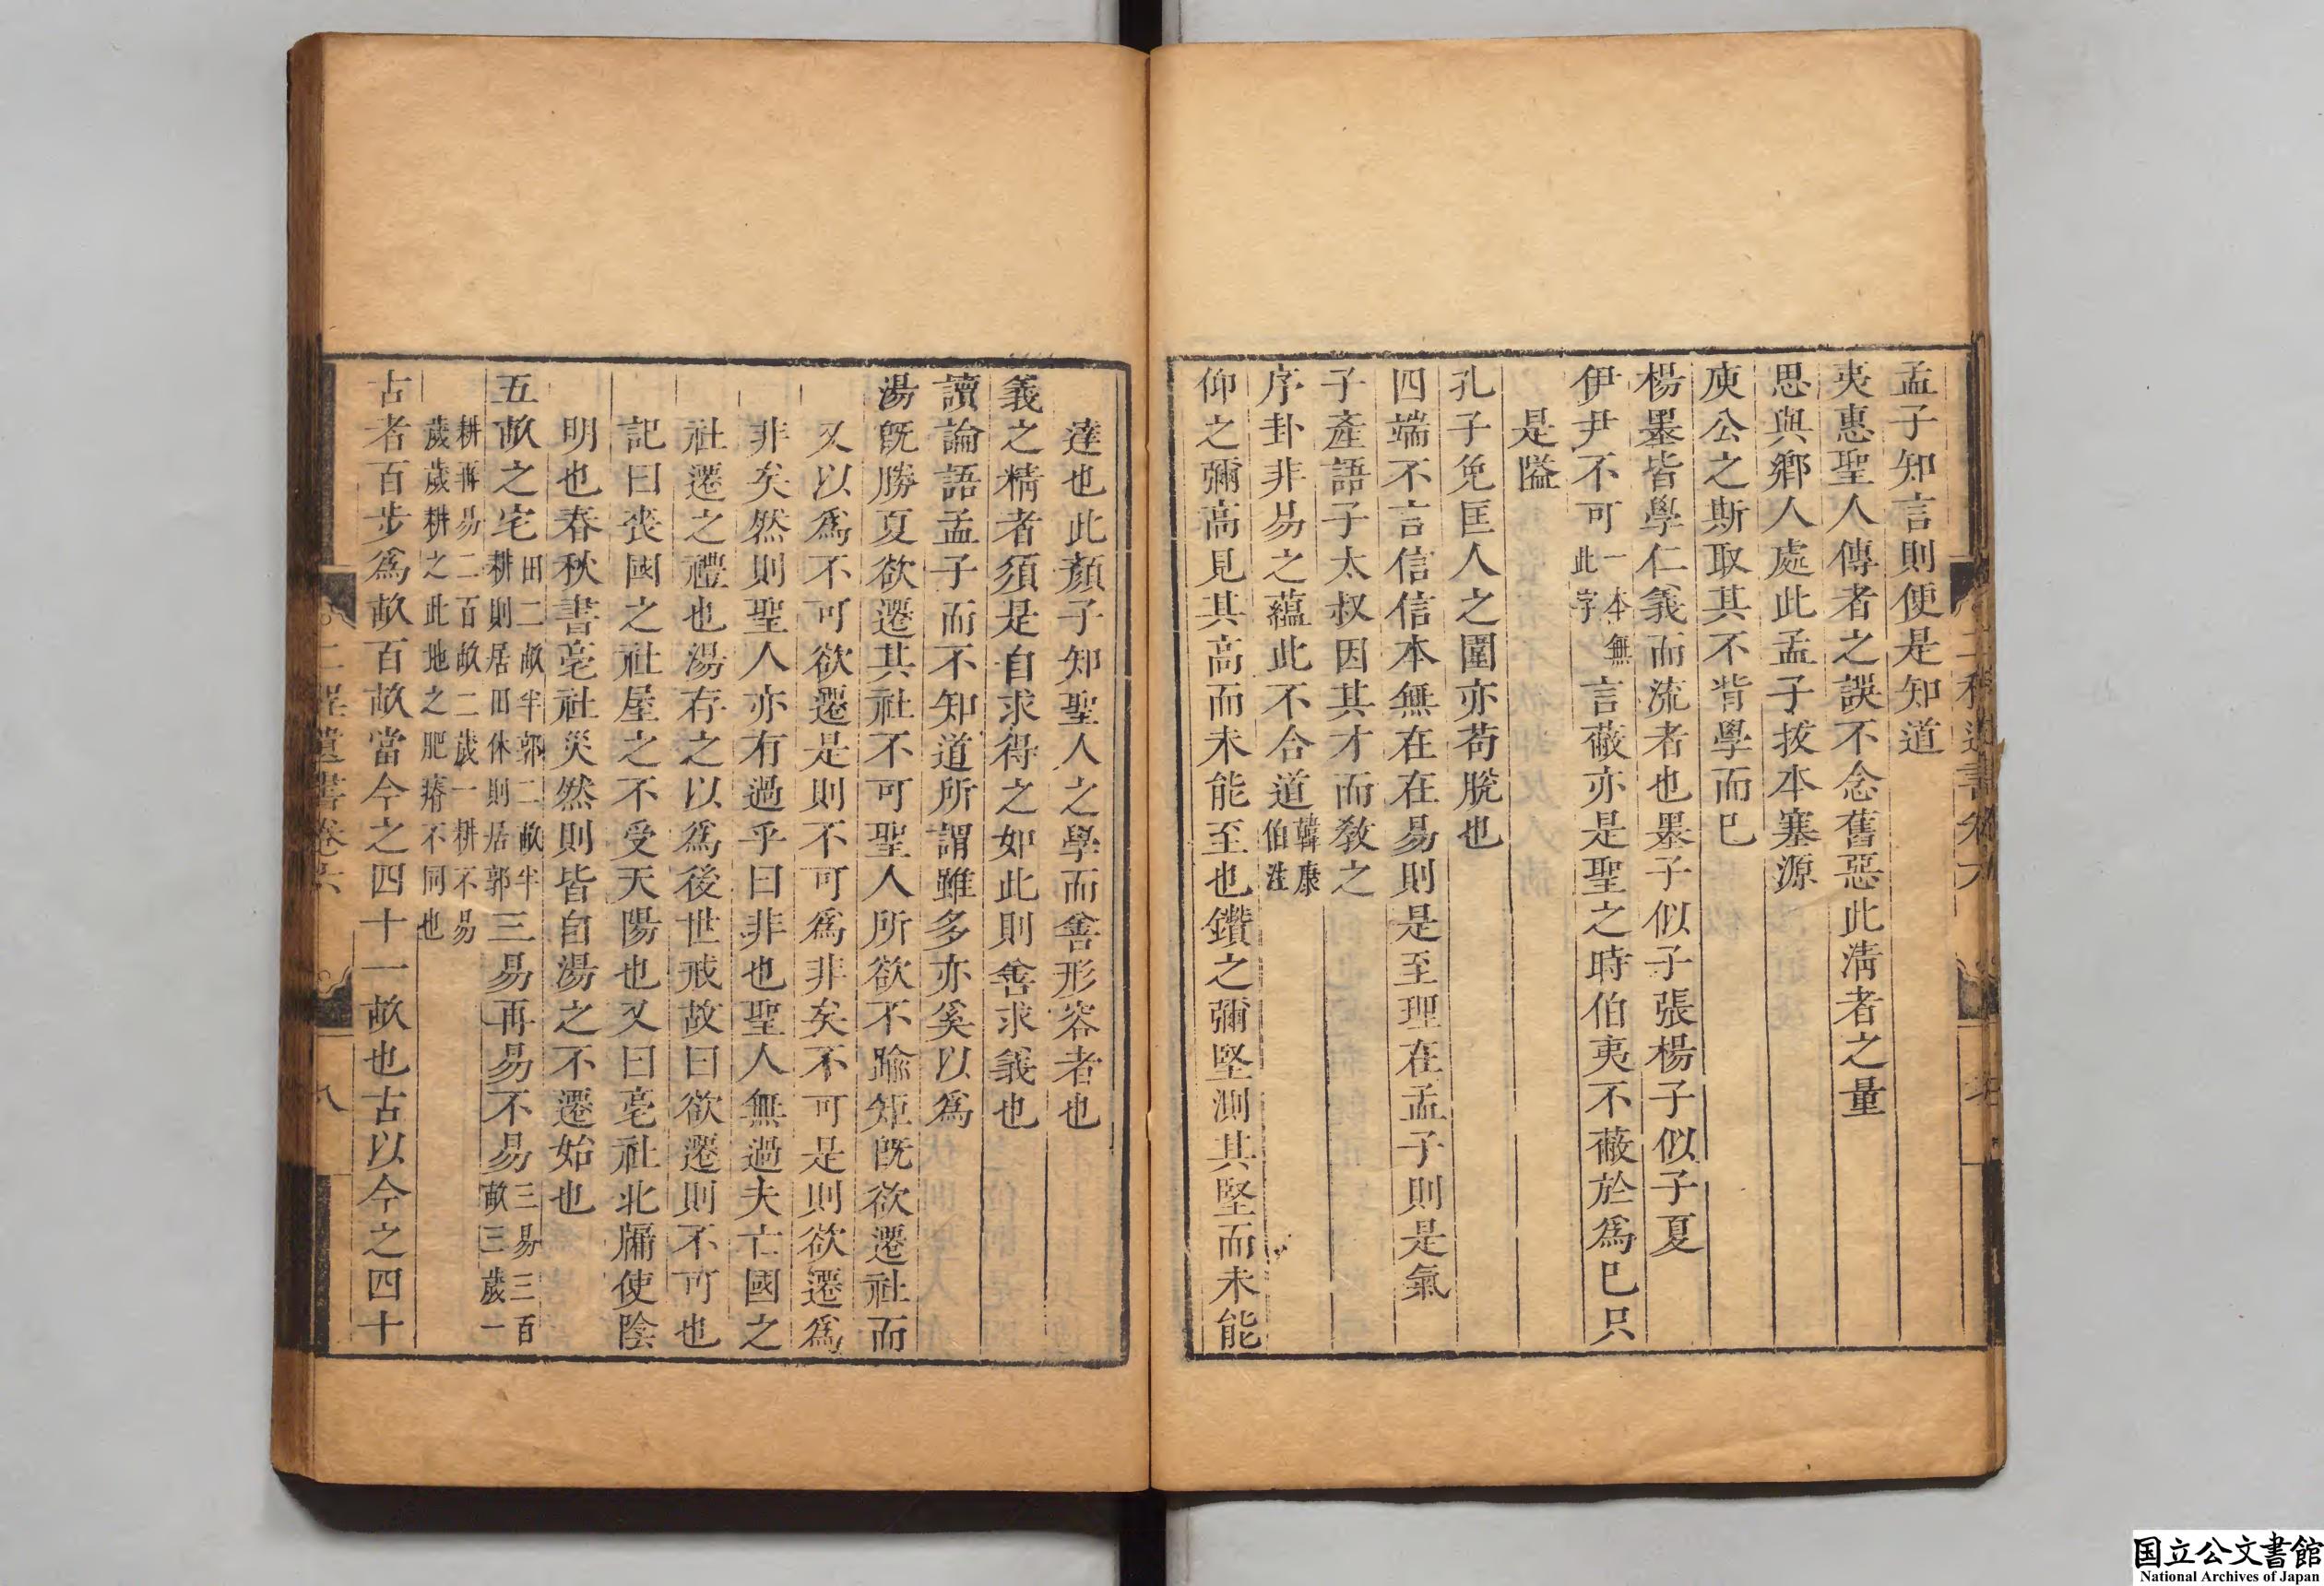 孟子知言則便是知道
夷惠聖人傳者之誤不念舊惡此淸者之量
思與鄉人處此孟子拔本塞源
庾公之斯取其不背學而已
楊墨皆學仁義而流者也墨子似子張楊子似子夏
伊尹不可一本無此字言蔽亦是聖之時伯夷不蔽於爲已只
是隘
孔子免匡人之圍亦苟脫也
四端不言信信本無在在易則是至理在孟子則是氣
子產語子太叔因其才而敎之
序卦非易之蘊此不合道韓康伯注
仰之彌高見其高而未能至也鑽之彌堅測其堅而未能
達也此顏子知聖人之學而善形容者也
義之精者須是自求得之如此則善求義也
讀論語孟子而不知道所謂雖多亦奚以爲
湯旣勝夏欲遷其社不可聖人所欲不踰矩旣欲遷社而
又以爲不可欲遷是則不可爲非矣不可是則欲遷爲
非矣然則聖人亦有過乎曰非也聖人無過夫亡國之
社遷之禮也湯存之以爲後世戒故曰欲遷則不可也
記曰喪國之社屋之不受天陽也又曰亳社北牖使陰
明也春秋書亳社災然則皆自湯之不遷始也
五畝之宅田二畝半郭二畝半耕則居田休則居郭三易再易不易三易三百畝三歲一
耕再易二百畝二歲一耕不易歲歲耕之此地之肥瘠不同也
古者百步爲畝百畝當今之四十一畝也古以今之四十
二程遺書卷六
八
国立公文書館
National Archives of Japan